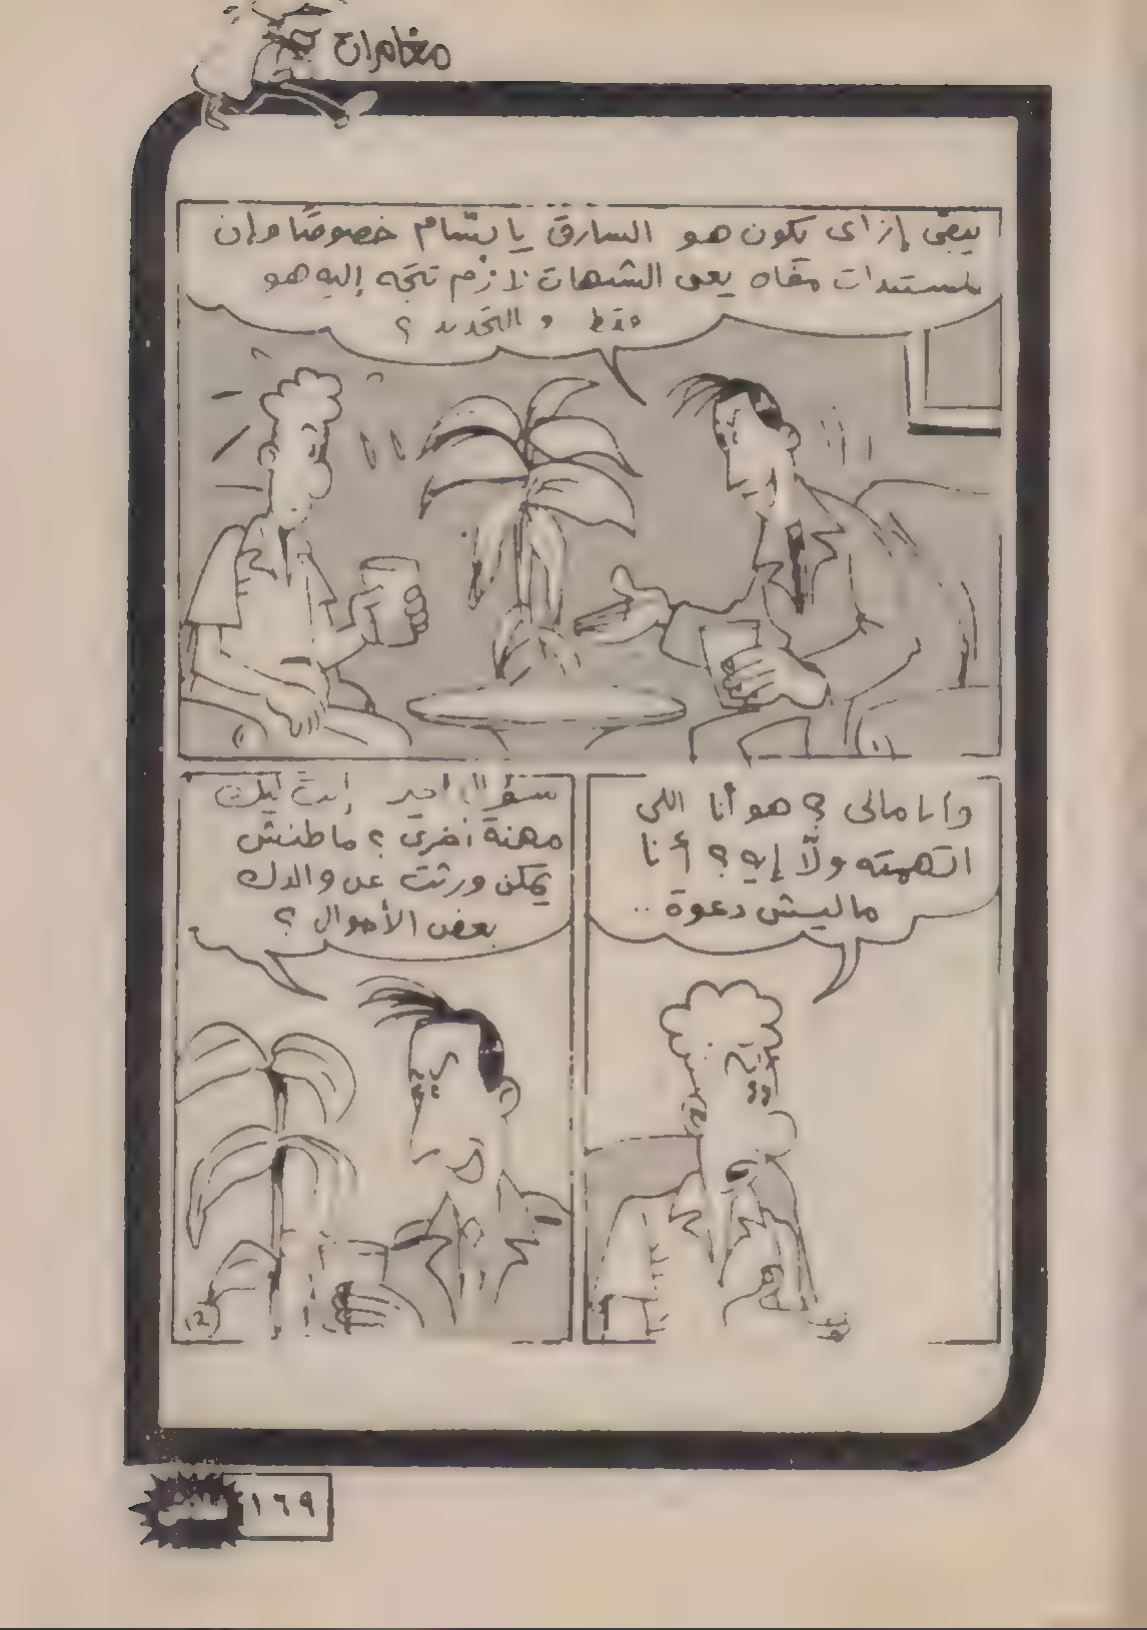 مغامرات
يبقى إزاى يكون هو السارق يا بسّام خصوصًا وإن
المستندات معاه يعنى الشبهات لازم تتجه إليه هو
فقط و التحديد ؟
وأنا مالى ؟ هو أنا اللى
اتهمته ولّا إيه ؟ أنا
ماليش دعوة ..
سؤال أخير إنتَ ليك
مهنة أخرى ؟ ماطنش
يمكن ورثت عن والدك
بعض الأموال ؟
١٦٩
فلاش